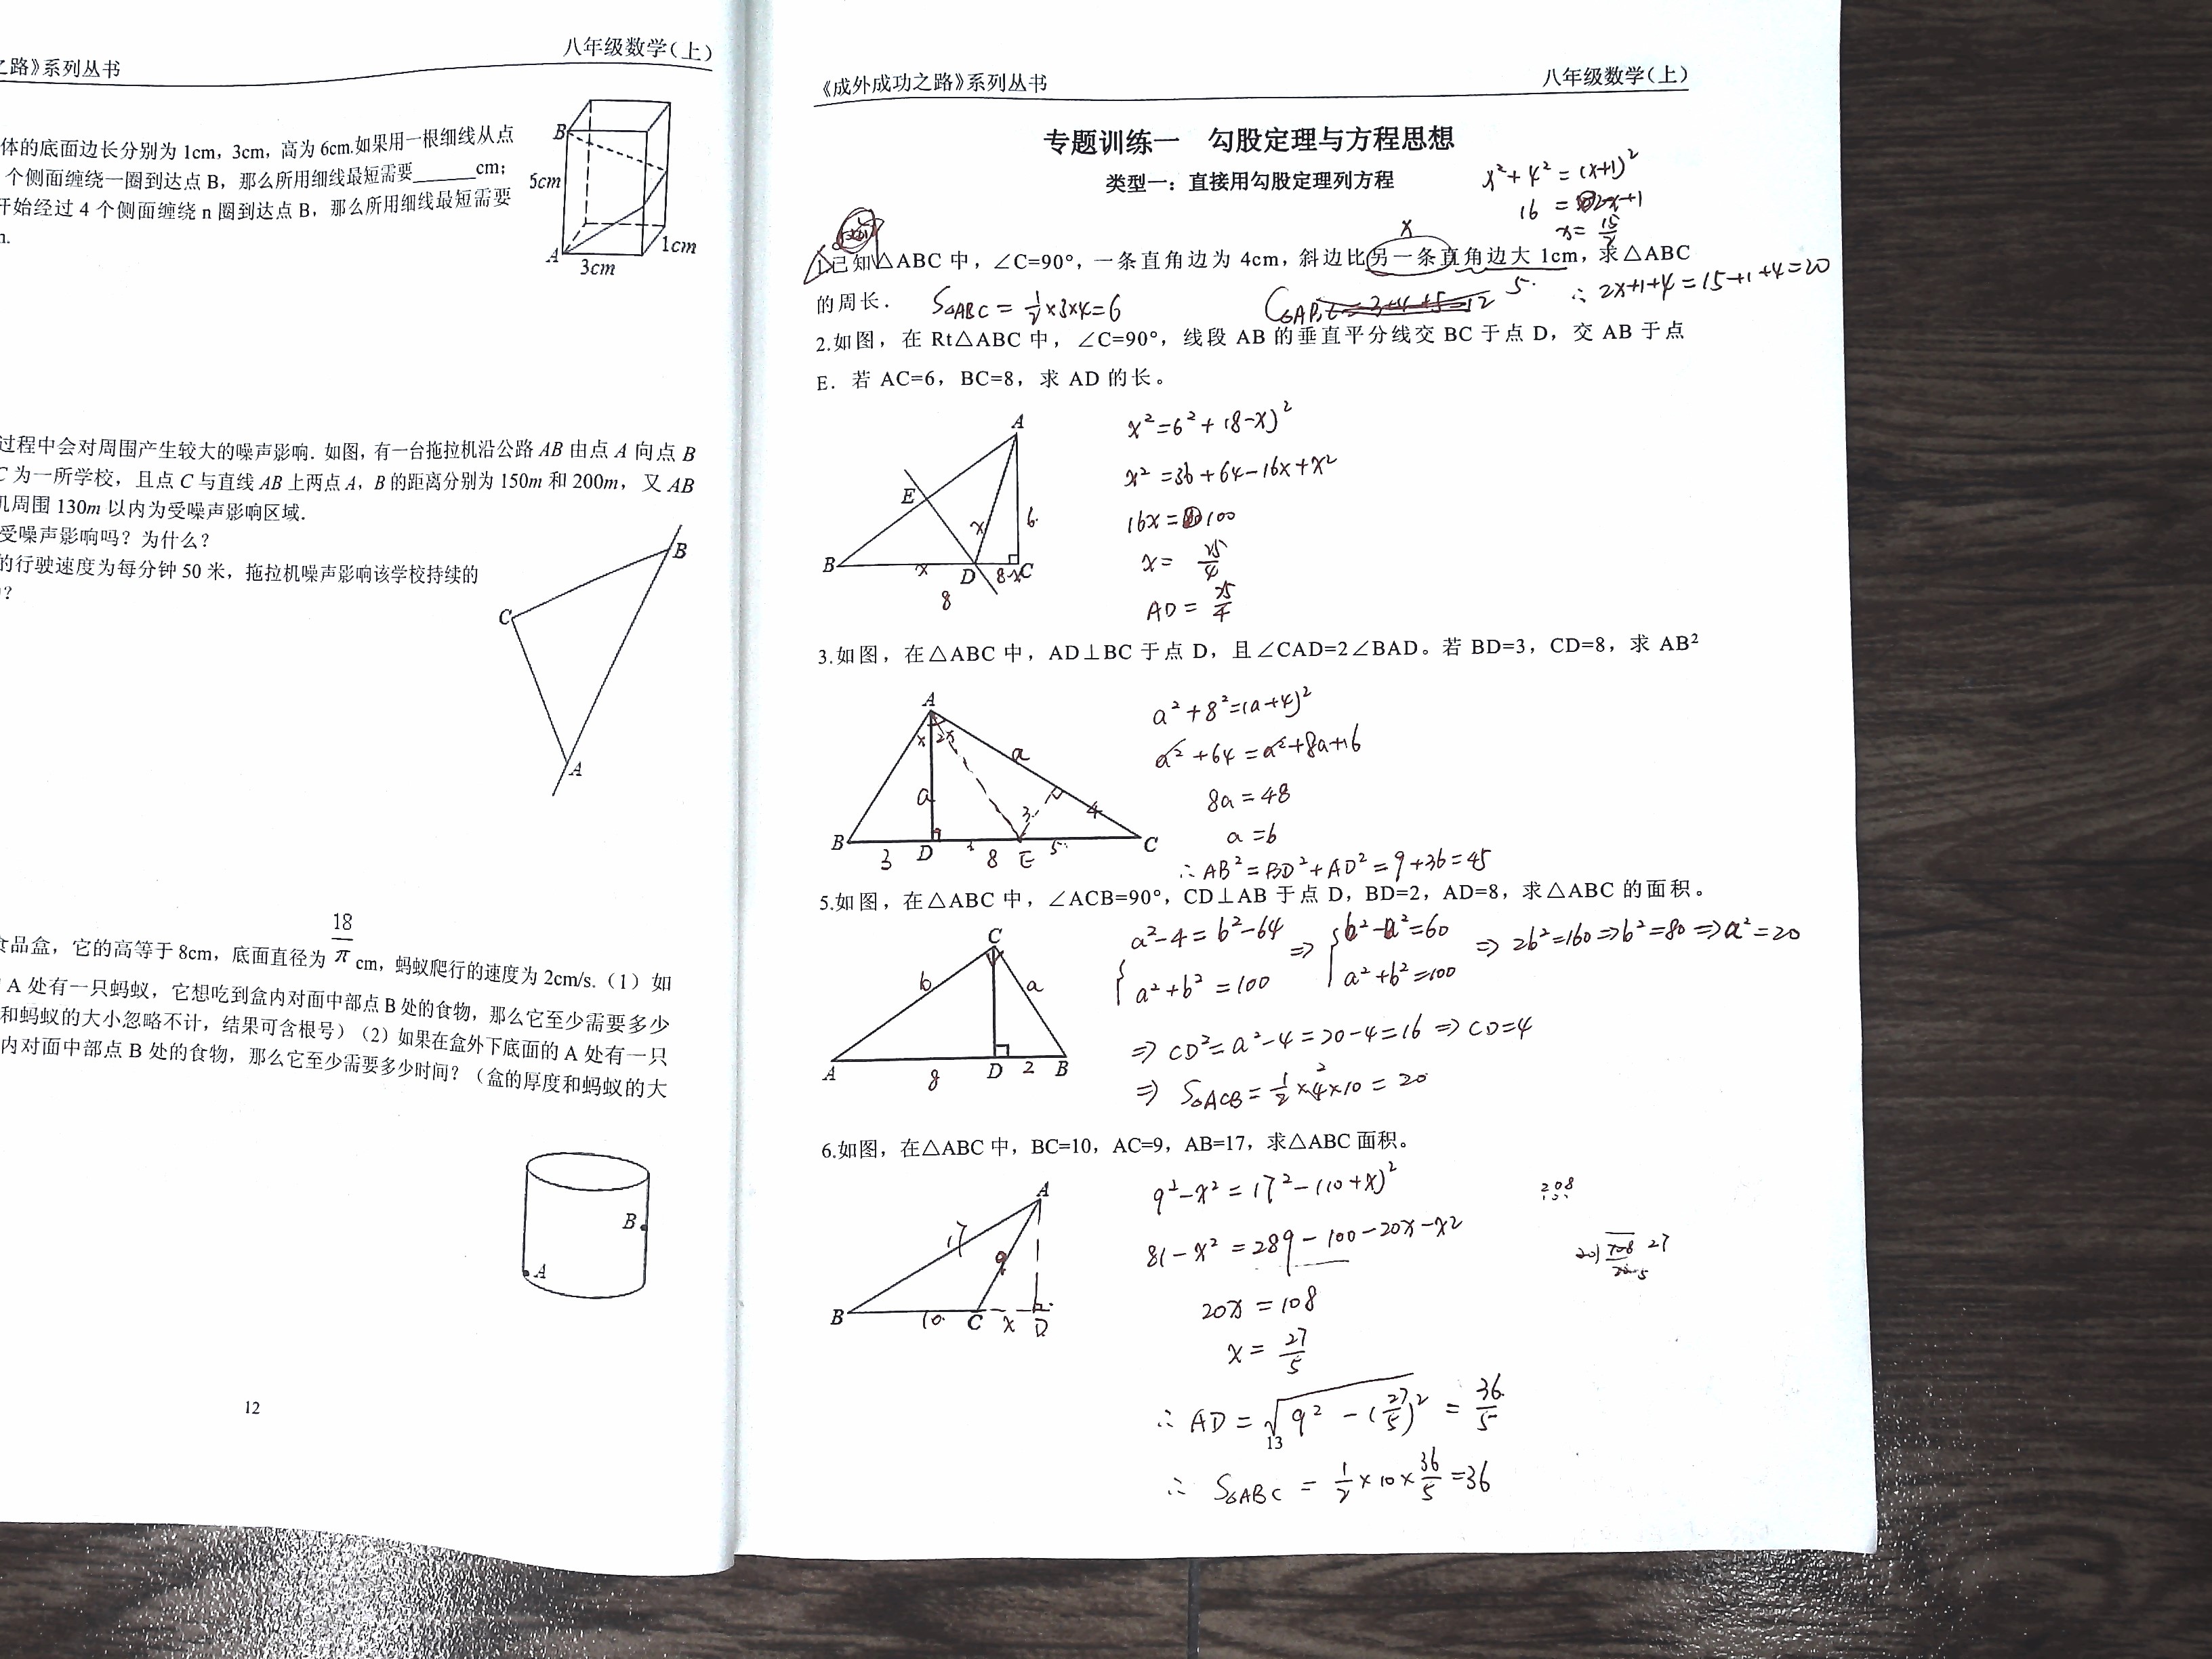 之路》系列丛书
八年级数学(上)
体的底面边长分别为 1cm，3cm，高为 6cm.如果用一根细线从点
个侧面缠绕一圈到达点 B，那么所用细线最短需要______cm；
开始经过 4 个侧面缠绕 n 圈到达点 B，那么所用细线最短需要
B
5cm
A
3cm
1cm
过程中会对周围产生较大的噪声影响．如图，有一台拖拉机沿公路 AB 由点 A 向点 B
C 为一所学校，且点 C 与直线 AB 上两点 A，B 的距离分别为 150m 和 200m，又 AB
机周围 130m 以内为受噪声影响区域．
受噪声影响吗？为什么？
的行驶速度为每分钟 50 米，拖拉机噪声影响该学校持续的
？
B
C
A
食品盒，它的高等于 8cm，底面直径为 18/π cm，蚂蚁爬行的速度为 2cm/s.（1）如
A 处有一只蚂蚁，它想吃到盒内对面中部点 B 处的食物，那么它至少需要多少
和蚂蚁的大小忽略不计，结果可含根号）（2）如果在盒外下底面的 A 处有一只
内对面中部点 B 处的食物，那么它至少需要多少时间？（盒的厚度和蚂蚁的大
B
A
12
《成外成功之路》系列丛书
八年级数学(上)
专题训练一 勾股定理与方程思想
类型一：直接用勾股定理列方程
x²+4²=(x+1)²
16 = 2x+1
x= 15/2
x
1.已知△ABC 中，∠C=90°，一条直角边为 4cm，斜边比另一条直角边大 1cm，求△ABC
的周长．
S△ABC = 1/2×3×4=6
C△ABC=3+4+5=12
5.
∴ 2x+1+4=15+1+4=20
2.如图，在 Rt△ABC 中，∠C=90°，线段 AB 的垂直平分线交 BC 于点 D，交 AB 于点
E．若 AC=6，BC=8，求 AD 的长。
A
E
x
6
B
x
D
8-x
C
8
x²=6²+(8-x)²
x²=36+64-16x+x²
16x=100
x= 25/4
AD= 25/4
3.如图，在△ABC 中，AD⊥BC 于点 D，且∠CAD=2∠BAD。若 BD=3，CD=8，求 AB²
A
x 2x
a
a
3
4
B
3
D
8
E
5
C
a²+8²=(a+4)²
a²+64=a²+8a+16
8a=48
a=6
∴AB²=BD²+AD²=9+36=45
5.如图，在△ABC 中，∠ACB=90°，CD⊥AB 于点 D，BD=2，AD=8，求△ABC 的面积。
C
b
a
A
8
D
2
B
{a²-4=b²-64 ⇒ {b²-a²=60 ⇒ 2b²=160⇒b²=80⇒a²=20
a²+b²=100 a²+b²=100
⇒ CD²=a²-4=20-4=16⇒CD=4
⇒ S△ACB=1/2×4×10=20
2
6.如图，在△ABC 中，BC=10，AC=9，AB=17，求△ABC 面积。
A
17
9
B
10
C
x
D
9²-x²=17²-(10+x)²
81-x²=289-100-20x-x²
20x=108
x= 27/5
∴ AD=√(9²-(27/5)²)= 36/5
13
∴ S△ABC = 1/2×10×36/5=36
208